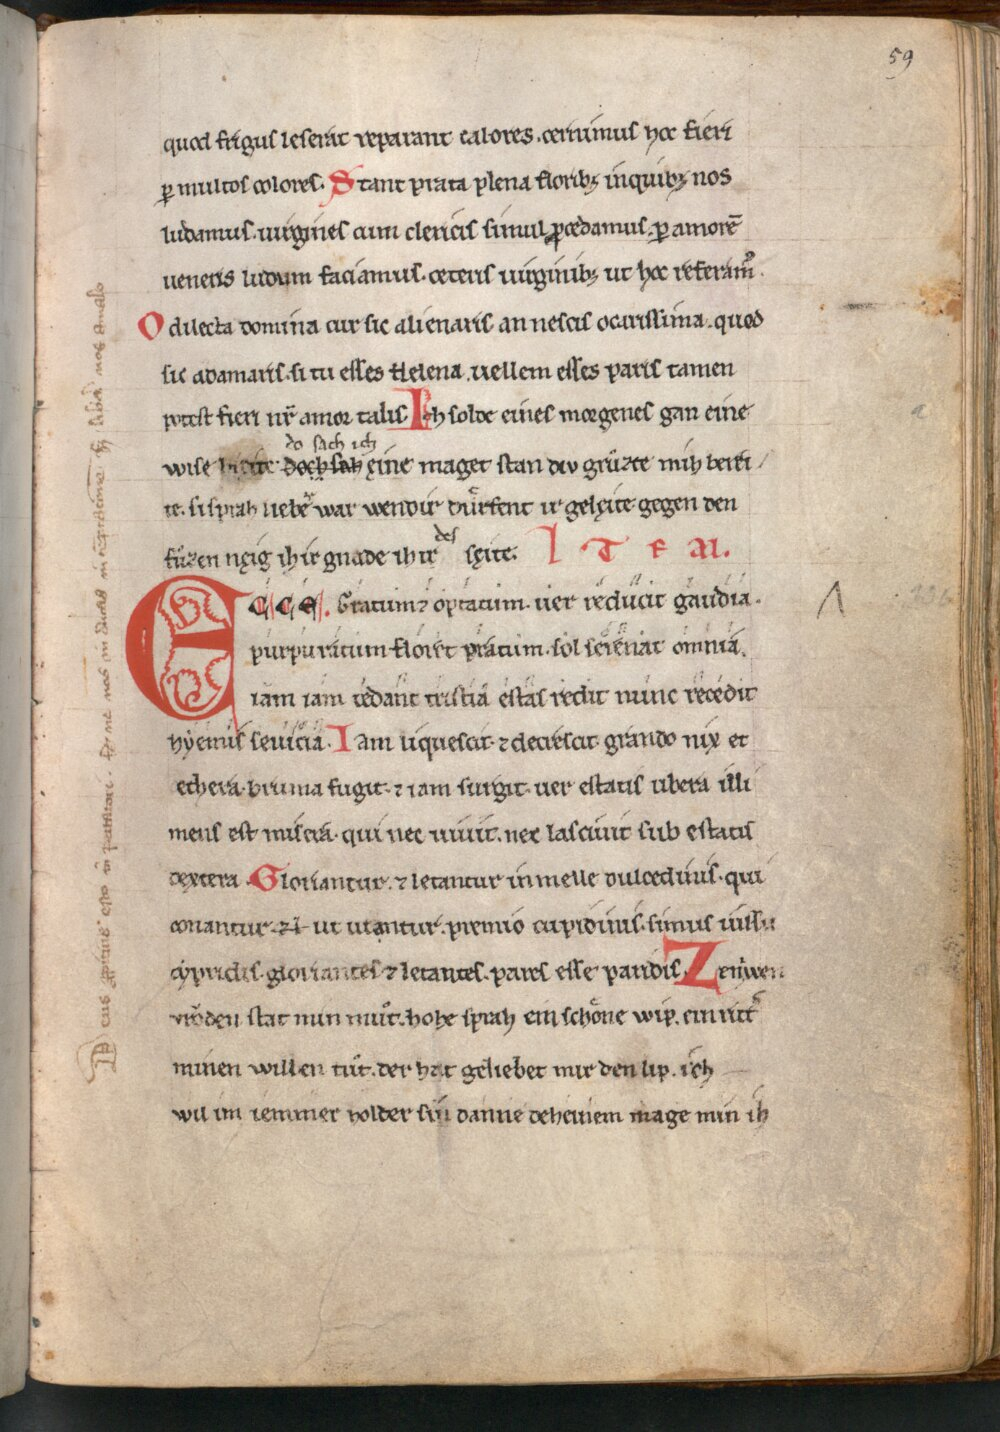 59
quod frigus leserat reparant calores. cernimus hoc fieri
ꝑ multos colores. Stant prata plena floribꝫ in quibꝫ nos
ludamus. uirgines cum clericis simul ꝓcedamus. ꝑ amorē
ueneris ludum faciamus. ceteris uirginibꝫ ut hoc referam᷒.
O dilecta domina cur sic alienaris. an nescis o carissima. quod
sic adamaris. si tu esses Helena. uellem esses paris tamen
potest fieri nr̄ amor talis. Ich solde eines morgenes gan eine
do sach ich
wise breite doch sah eine maget stan div gruͦzte mih berei
te. si sprah liebeͬ war wendir durfent ir geleite gegen den
des
fuͤzen neig ih ir gnade ih ir seite. ITEM.
ECCE. Gratum ⁊ optatum. uer reducit gaudia.
purpuratum floret pratum. sol serenat omnia.
iam iam cedant tristia estas redit nunc recedit
hyemis seuicia. Iam liquescit. ⁊ decrescit grando nix et
cethera. bruma fugit. ⁊ iam surgit. uer estatis ubera illi
mens est misera. qui nec uiuit. nec lasciuit sub estatis
dextera. Gloriantur. ⁊ letantur in melle dulcedinis. qui
conantur ut utantur. premio cupidinis. simus iussu
cypridis. gloriantes ⁊ letantes. pares esse paridis. Ze niwen
vroͤden stat min muͦt. hohe sprah ein schoͤne wip. ein ritt᷒
minen willen tuͦt. der hat geliebet mir den lip. ich
wil im iemmer holder sin danne deheinem mage min ih